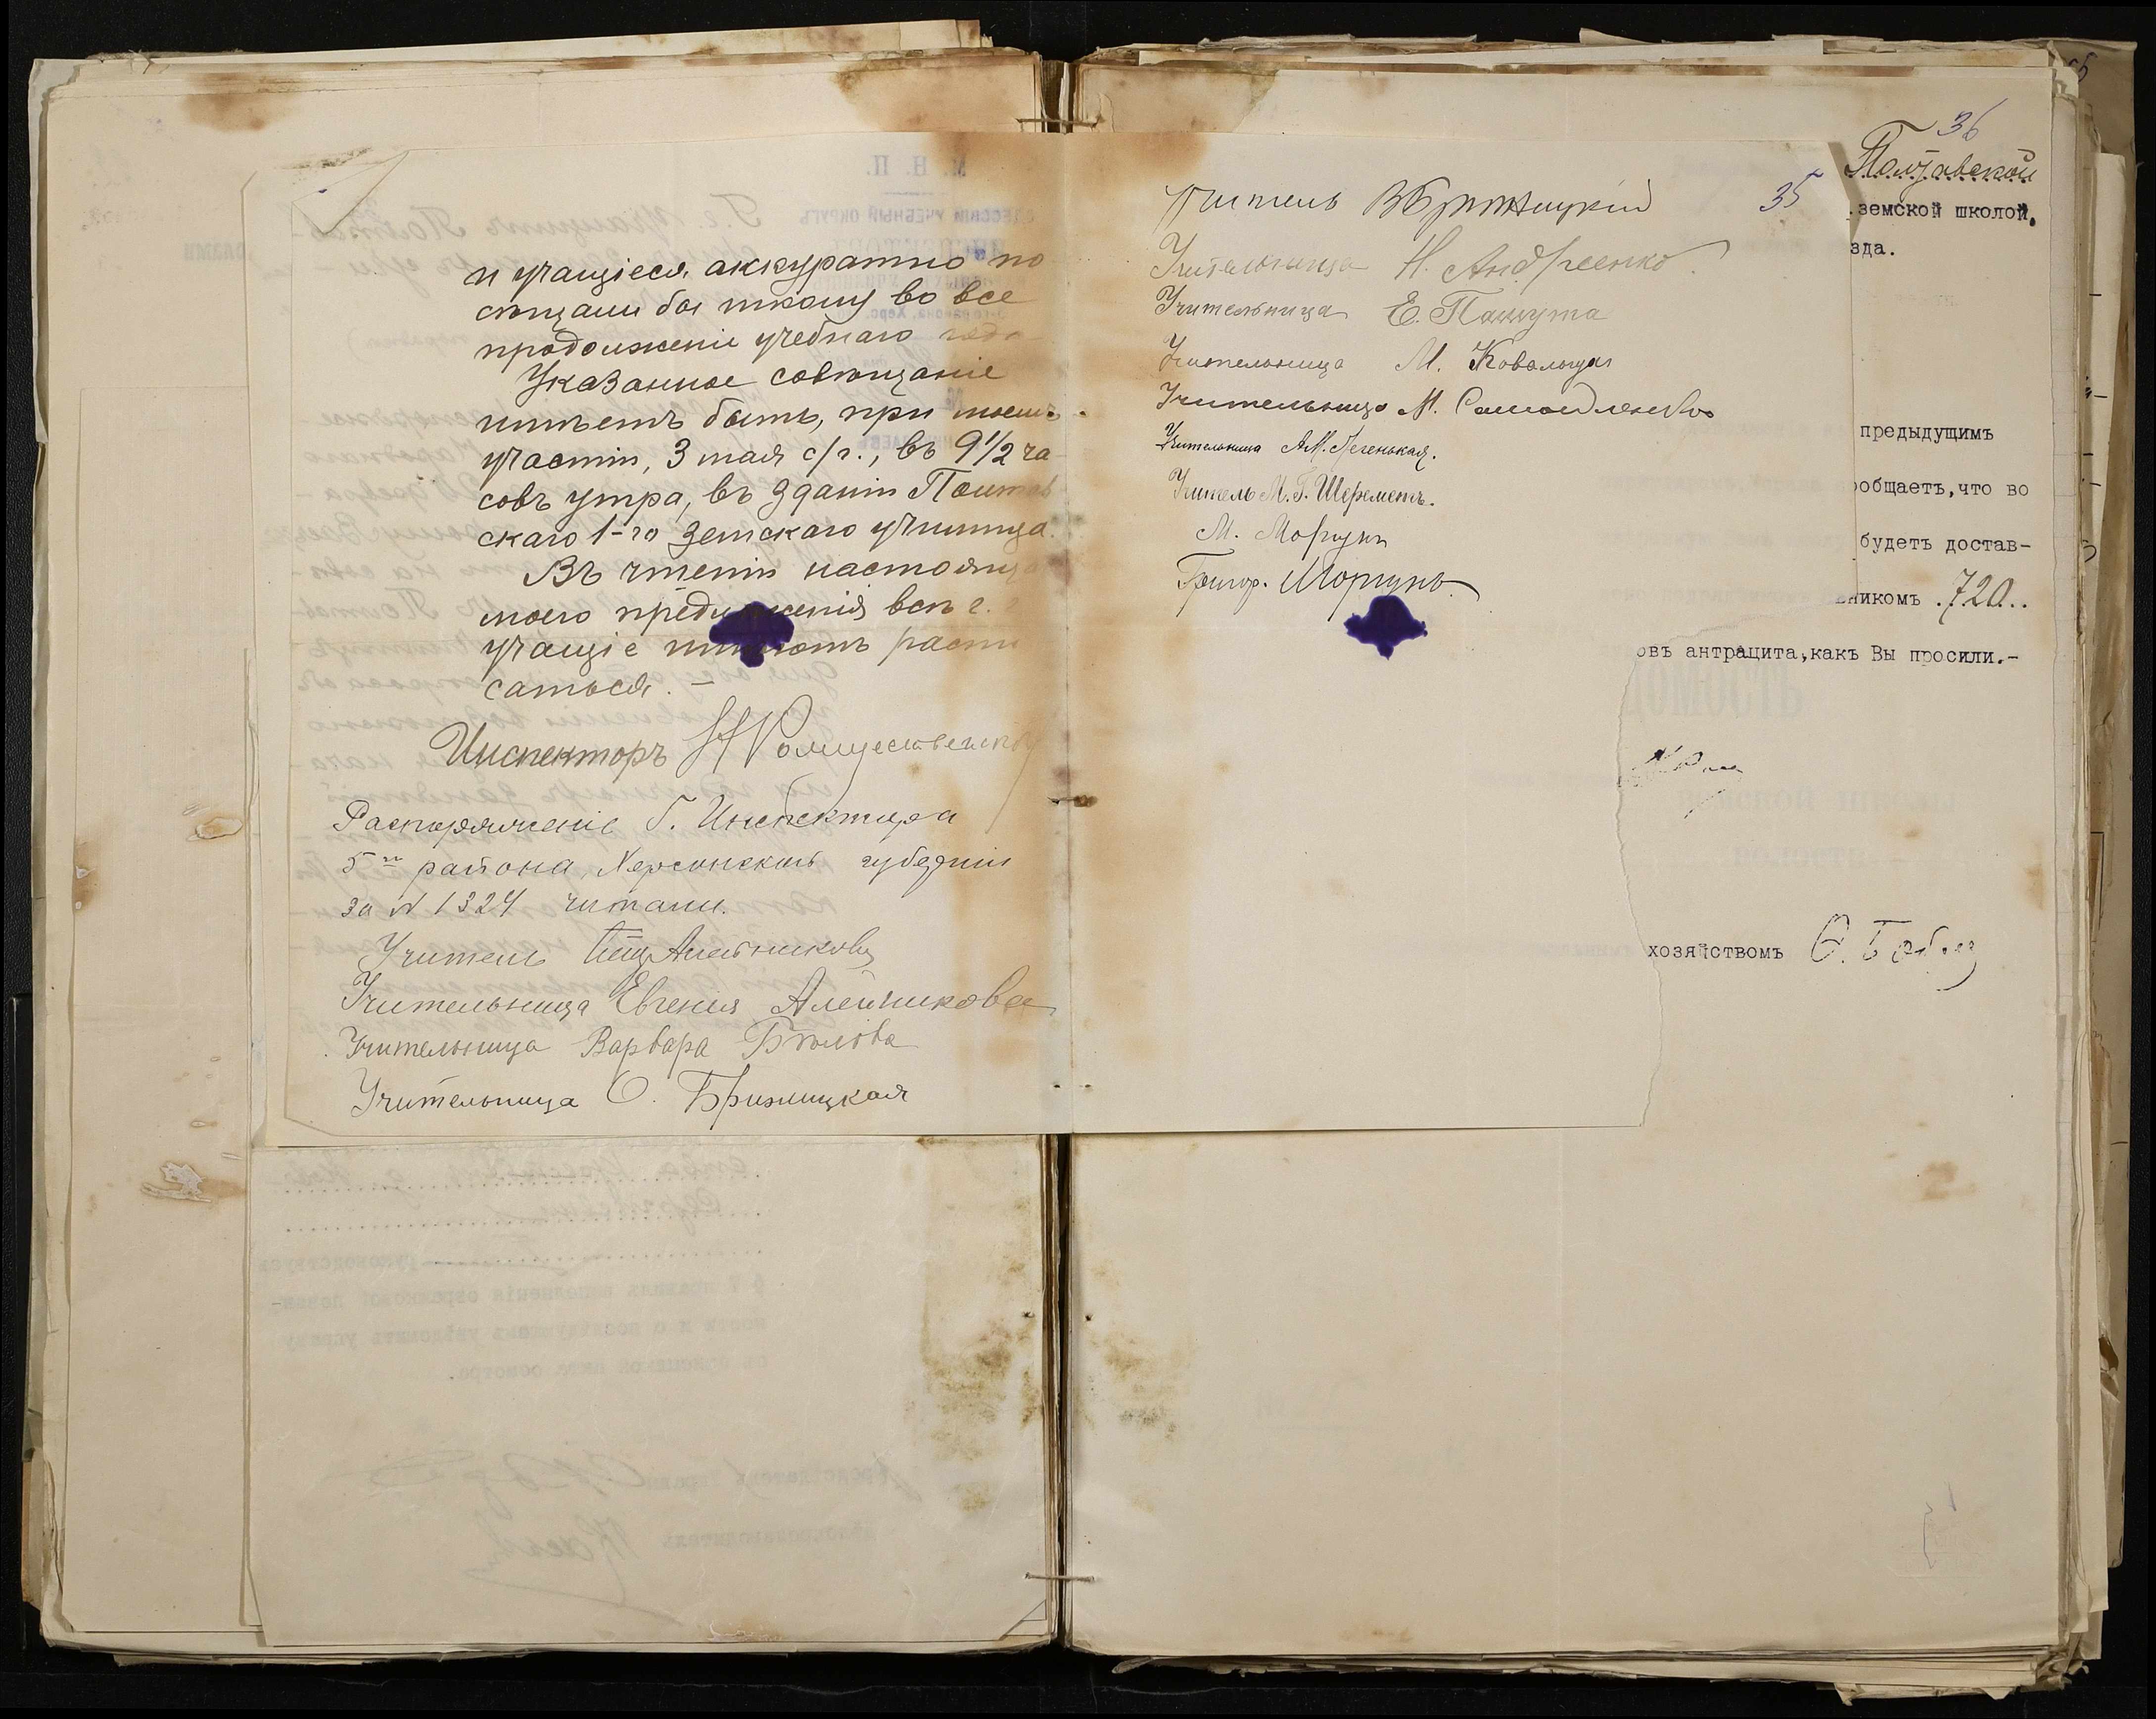 и учащіеся аккуратно по
сѣщали бы школу во все
продолженіе учебнаго года
Указанное совѣщаніе
имѣетъ быть, при моемъ
участіи, 3 мая с/г., въ 9 1/2 ча
совъ утра, въ зданіи Полтав
скаго 1-го Земскаго училища.
Въ чтеніи настояща
моего предложенія всѣ г. г
учащіе имѣютъ распи
саться. –
Инспекторъ Н Рождественскій
Распоряженіе Г. Инспектора
5го района, Херсонской губерніи
за № 1324 читали.
Учитель Алейниковъ
Учительница Евгенія Алейникова
Учительница Варвара Бѣлова
Учительница О. Брижицкая
35
Учитель Брижицкій
Учительница Н. Андреенко
Учительница Е. Пашута
Учительница М. Ковальчук
Учительница М. Самойленко
Учительница А.М. Легенькая.
Учитель М. Г. Шереметъ.
М. Моргунъ
Григор. Моргунъ.
36
Полтавской
земской школой.
зда.
предыдущимъ
ообщаетъ, что во
будетъ достав-
никомъ .720..
овъ антрацита, какъ Вы просили.-
хозяйствомъ